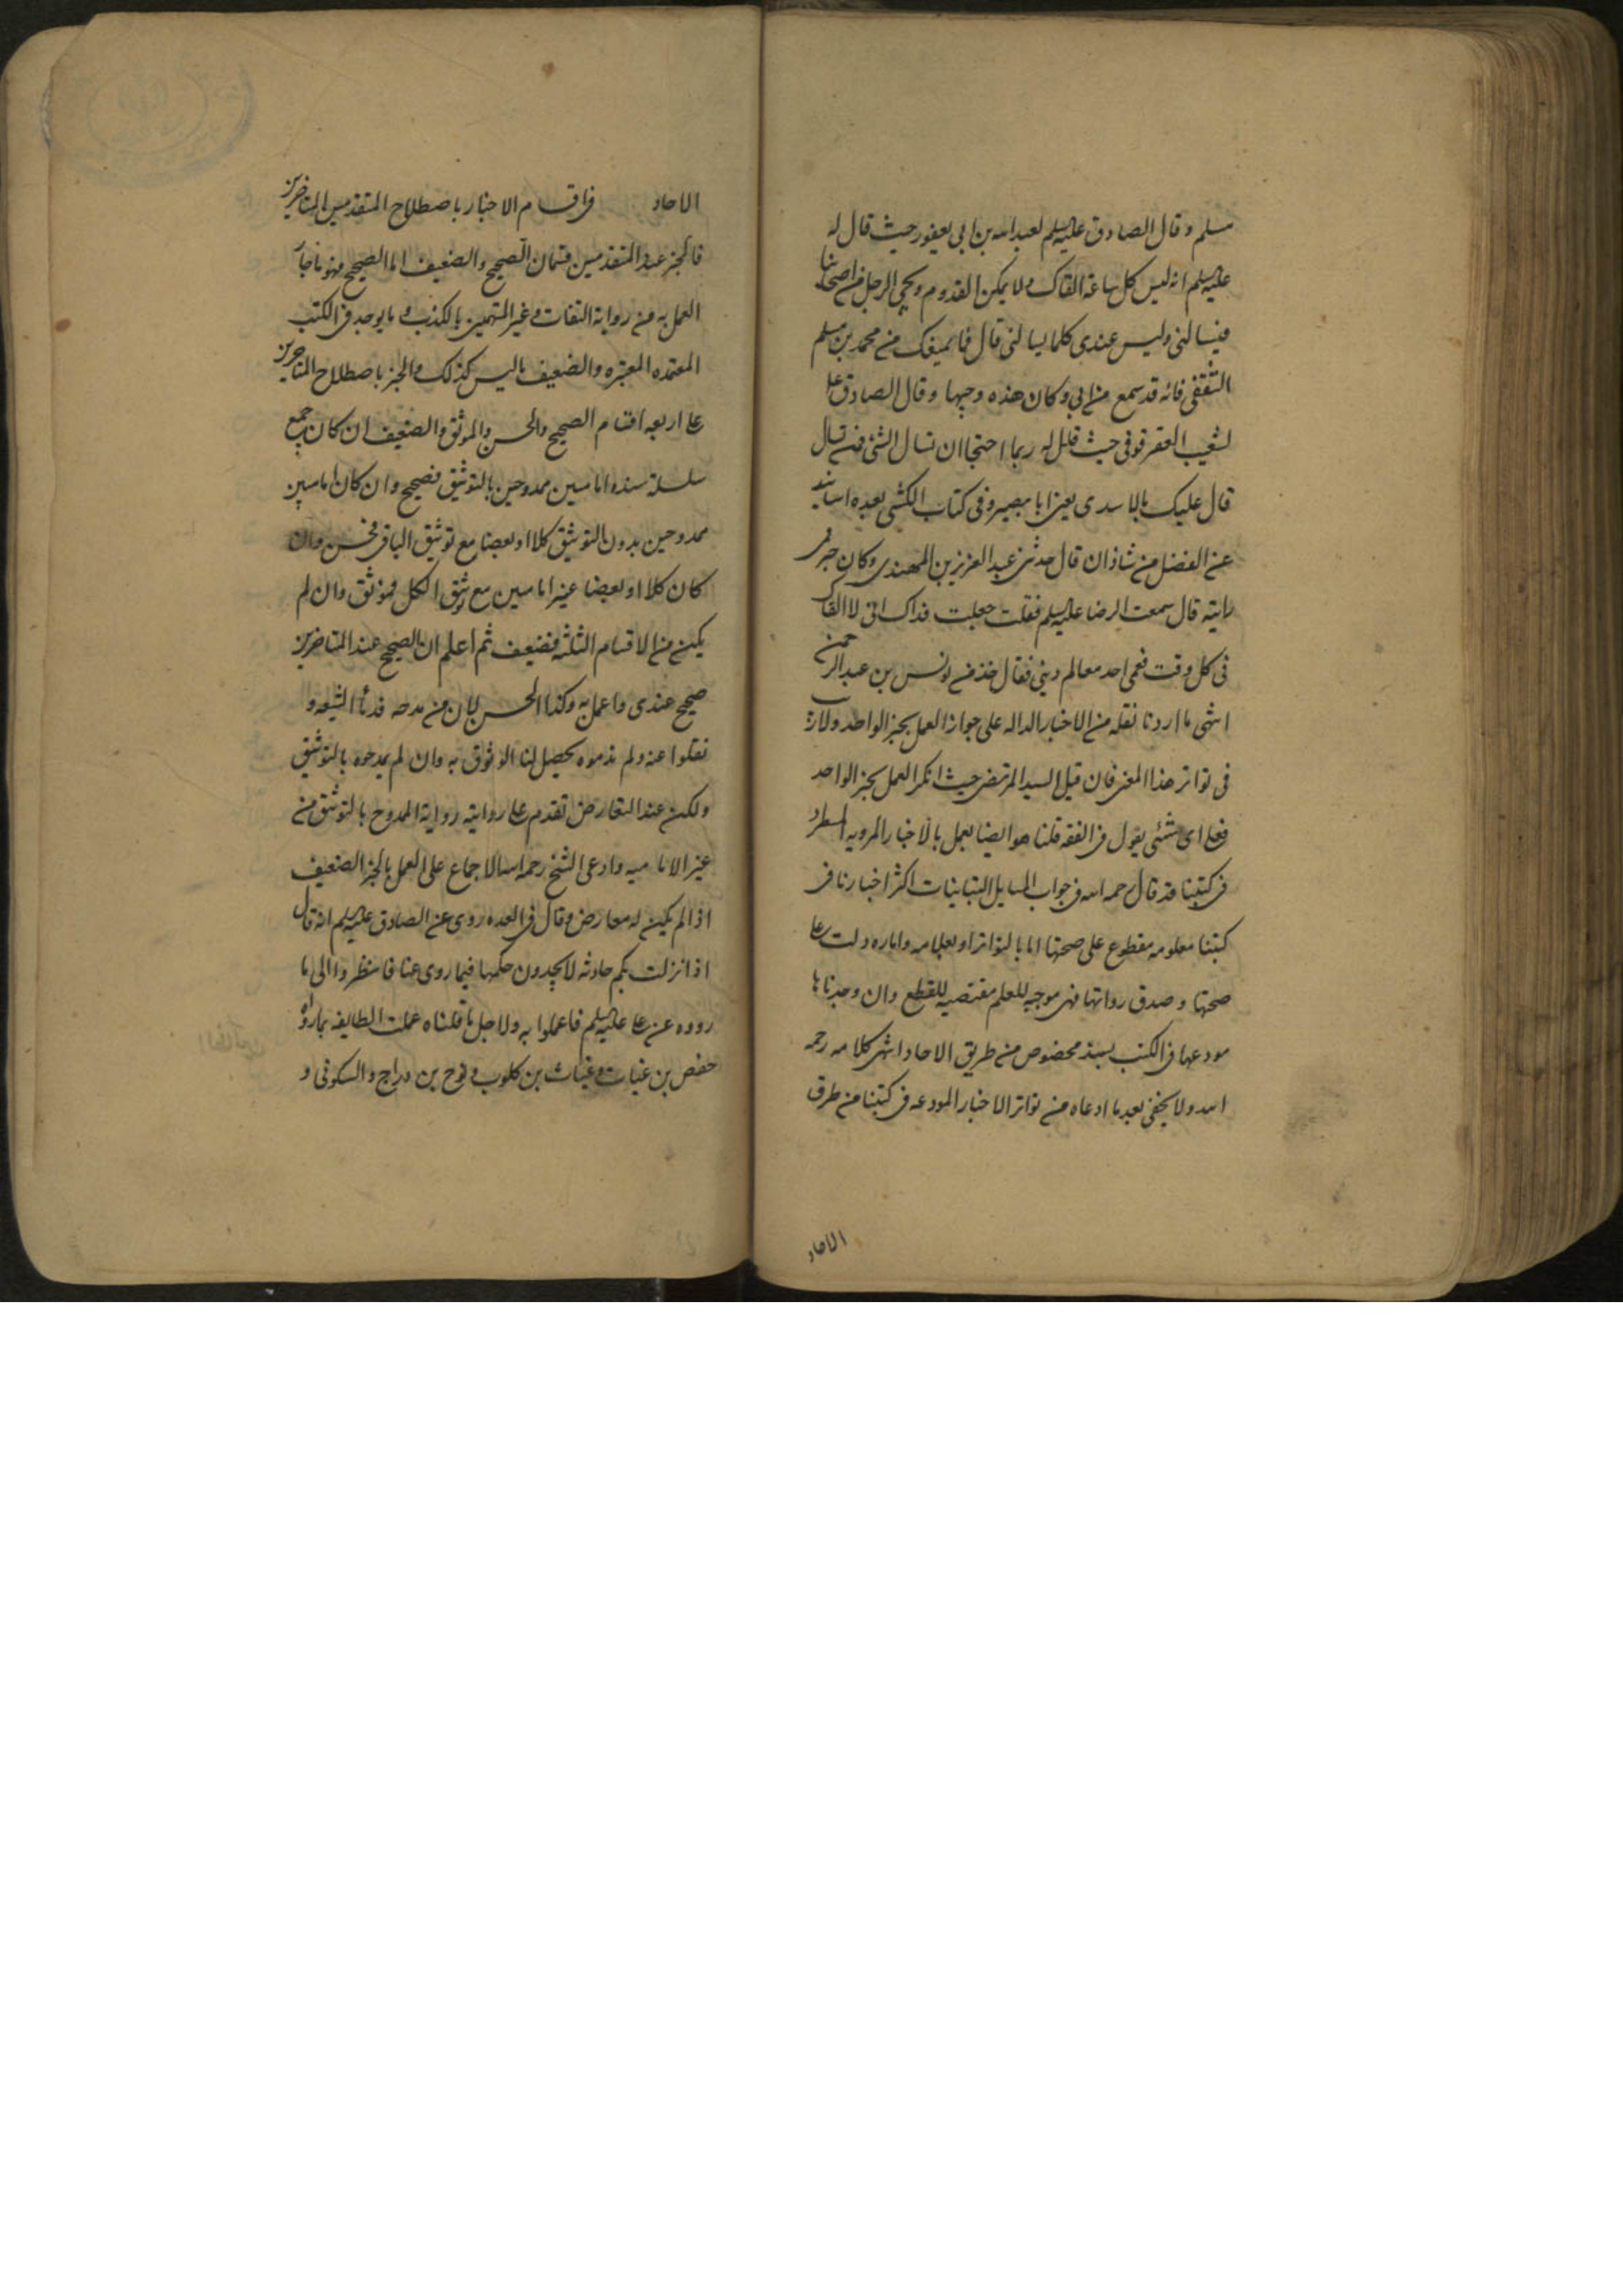 مسلم و قال الصادق علیه‌السلم لعبد الله بن ابی یعفور حیث قال له
علیه‌السلم انه لیس کل ساعة القاک ولا یمکن القدوم و یجی الرجل من اصحابنا
فیسالنی ولیس عندی کلما یسالنی قال فما یمنعک من محمد بن مسلم
الثقفی فانه قد سمع من ابی و کان عنده وجیها و قال الصادق ع
لشعیب العقرقوفی حیث قال له ربما احتجنا ان نسال الشئ فمن نسال
قال علیک بالاسدی یعنی ابا بصیر و فی کتاب الکشی بعدة اسانید
عن الفضل بن شاذان قال حدثنی عبد العزیز بن المهتدی و کان خیر قمی
رایته قال سمعت الرضا علیه‌السلم فقلت جعلت فداک انی لا القاک
فی کل وقت فعمن اخذ معالم دینی فقال خذ من یونس بن عبد الرحمن
انتهی ما اردنا نقله من الاخبار الداله علی جواز العمل بخبر الواحد ولا ریب
فی تواتر هذا المعنی فان قیل السید المرتضی حیث انکر العمل بخبر الواحد
فعلی ای شئی یعول فی الفقه قلنا هو ایضا یعمل بالاخبار المرویه المسطره
فی کتبنا فقد قال رحمه الله فی جواب المسایل التبانیات اکثر اخبارنا فی
کتبنا معلومه مقطوع علی صحتها اما بالتواتر او بعلامه و اماره دلت علی
صحتها و صدق رواتها فهی موجبه للعلم مقتضیه للقطع وان وجدناها
مودعها فی الکتب بسند مخصوص من طریق الاحاد انتهی کلامه رحمه
الله ولا یخفی بعد ما ادعاه من تواتر الاخبار المودعه فی کتبنا من طرق
الاحاد
الاحاد فی اقسام الاخبار باصطلاح المتقدمین والمتاخرین
فالخبر عند المتقدمین قسمان الصحیح والضعیف اما الصحیح فهو ما جاز
العمل به من روایة الثقات و غیر المتهمین بالکذب و ما یوجد فی الکتب
المعتمده المعتبره والضعیف ما لیس کذلک والخبر باصطلاح المتاخرین
علی اربعه اقسام الصحیح والحسن والموثق والضعیف ان کان جمیع
سلسلة سنده امامیین ممدوحین بالتوثیق فصحیح وان کان امامیین
ممدوحین بدون التوثیق کلا او بعضا مع توثیق الباقی فحسن وان
کان کلا او بعضا غیر امامیین مع توثیق الکل فموثق وان لم
یکن من الاقسام الثلثه فضعیف ثم اعلم ان الصحیح عند المتاخرین
صحیح عندی واعمل به وکذا الحسن لان من مدحه قدمأ الشیعه و
نقلوا عنه ولم یذموه یحصل لنا الوثوق به وان لم یمدحوه بالتوثیق
ولکن عند التعارض تقدم علی روایته روایة الممدوح بالتوثیق من
غیر الامامیه وادعی الشیخ رحمه الله الاجماع علی العمل بالخبر الضعیف
اذا لم یکن له معارض و قال فی العده روی عن الصادق علیه‌السلم انه قال
اذا نزلت بکم حادثه لا تجدون حکمها فیما روی عنا فانظروا الی ما
رووه عن علی علیه‌السلم فاعملوا به ولاجل ما قلناه عملت الطایفه بما رواه
حفص بن غیاث و غیاث بن کلوب و نوح بن دراج و السکونی و